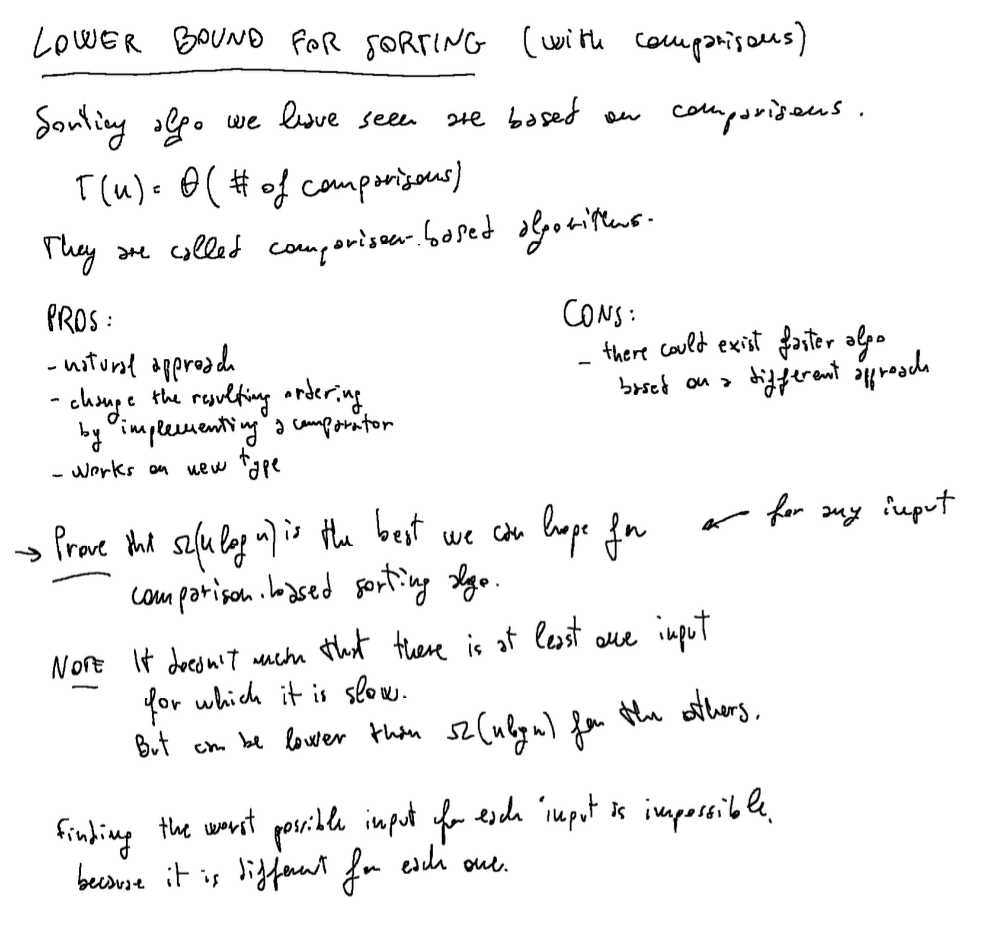 LOWER BOUND FOR SORTING (with comparisons)
Sorting algo we have seen are based on comparisons.
T(n) = Θ(# of comparisons)
They are called comparison-based algorithms.
PROS:
- natural approach
- change the resulting ordering
by implementing a comparator
- works on new type
CONS:
- there could exist faster algo
based on a different approach
→ Prove that Ω(n log n) is the best we can hope for ← for any input
comparison-based sorting algo.
NOTE It doesn't mean that there is at least one input
for which it is slow.
But can be lower than Ω(n log n) for the others.
Finding the worst possible input for each input is impossible,
because it is different for each one.